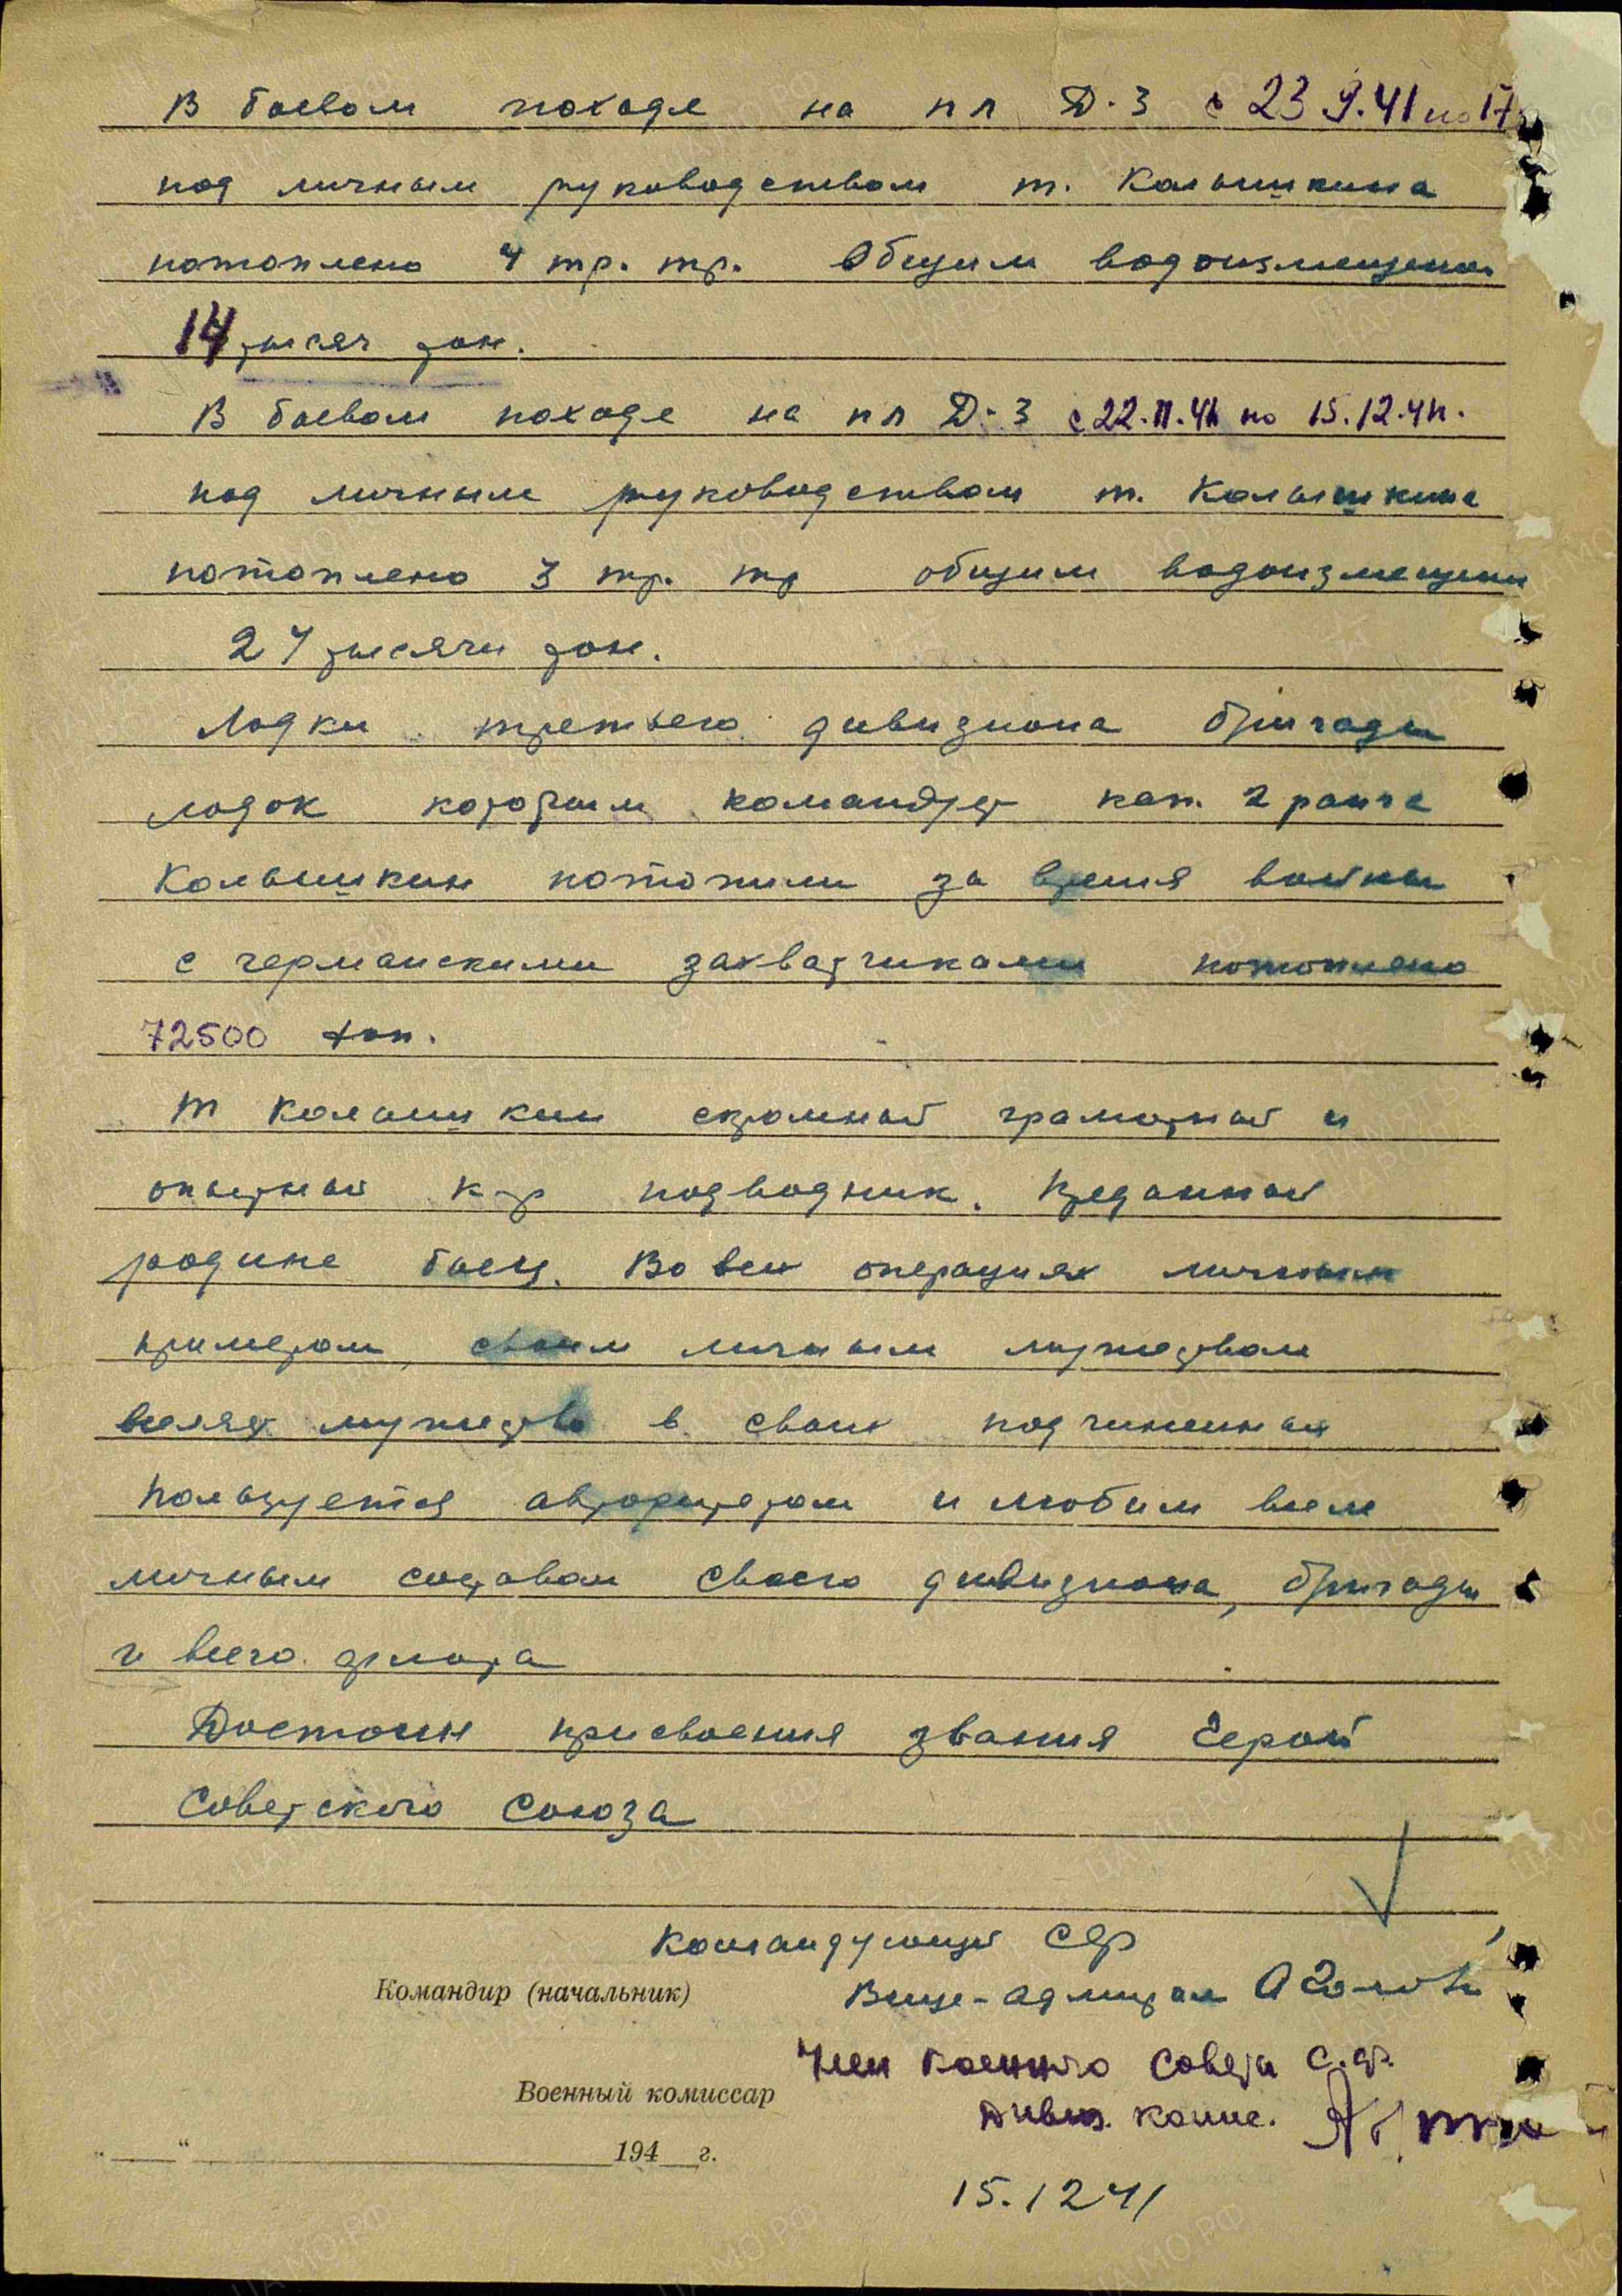 В боевом походе на пл Д-3 с 23 9.41 по 17
под личным руководством т. Колышкина
потоплено 4 тр. тр. Общим водоизмещением
14 тысяч тон.
В боевом походе на пл Д-3 с 22.11.41 по 15.12.41г.
под личным руководством т. Колышкина
потоплено 3 тр. тр общим водоизмещении
24 тысячи тон.
Лодки третьего дивизиона бригады
лодок которым командует кап. 2 ранга
Колышкин потопили за время войны
с германскими захватчиками потоплено
72500 тон.
Т Колышкин скромный грамотный и
опытный к-р подводник. Преданный
родине боец. Во всех операциях личным
примером, своим личным мужеством
вселяет мужество в своих подчиненных
Пользуется авторитетом и любим всем
личным составом своего дивизиона, бригады
и всего флота
Достоин присвоения звания Герой
Советского Союза
Командующий СФ
Командир (начальник)
Вице-адмирал А Головко
Член Военного Совета С.Ф.
Военный комиссар
Дивиз. комис.
"___" ______________ 194__г.
15.12 41